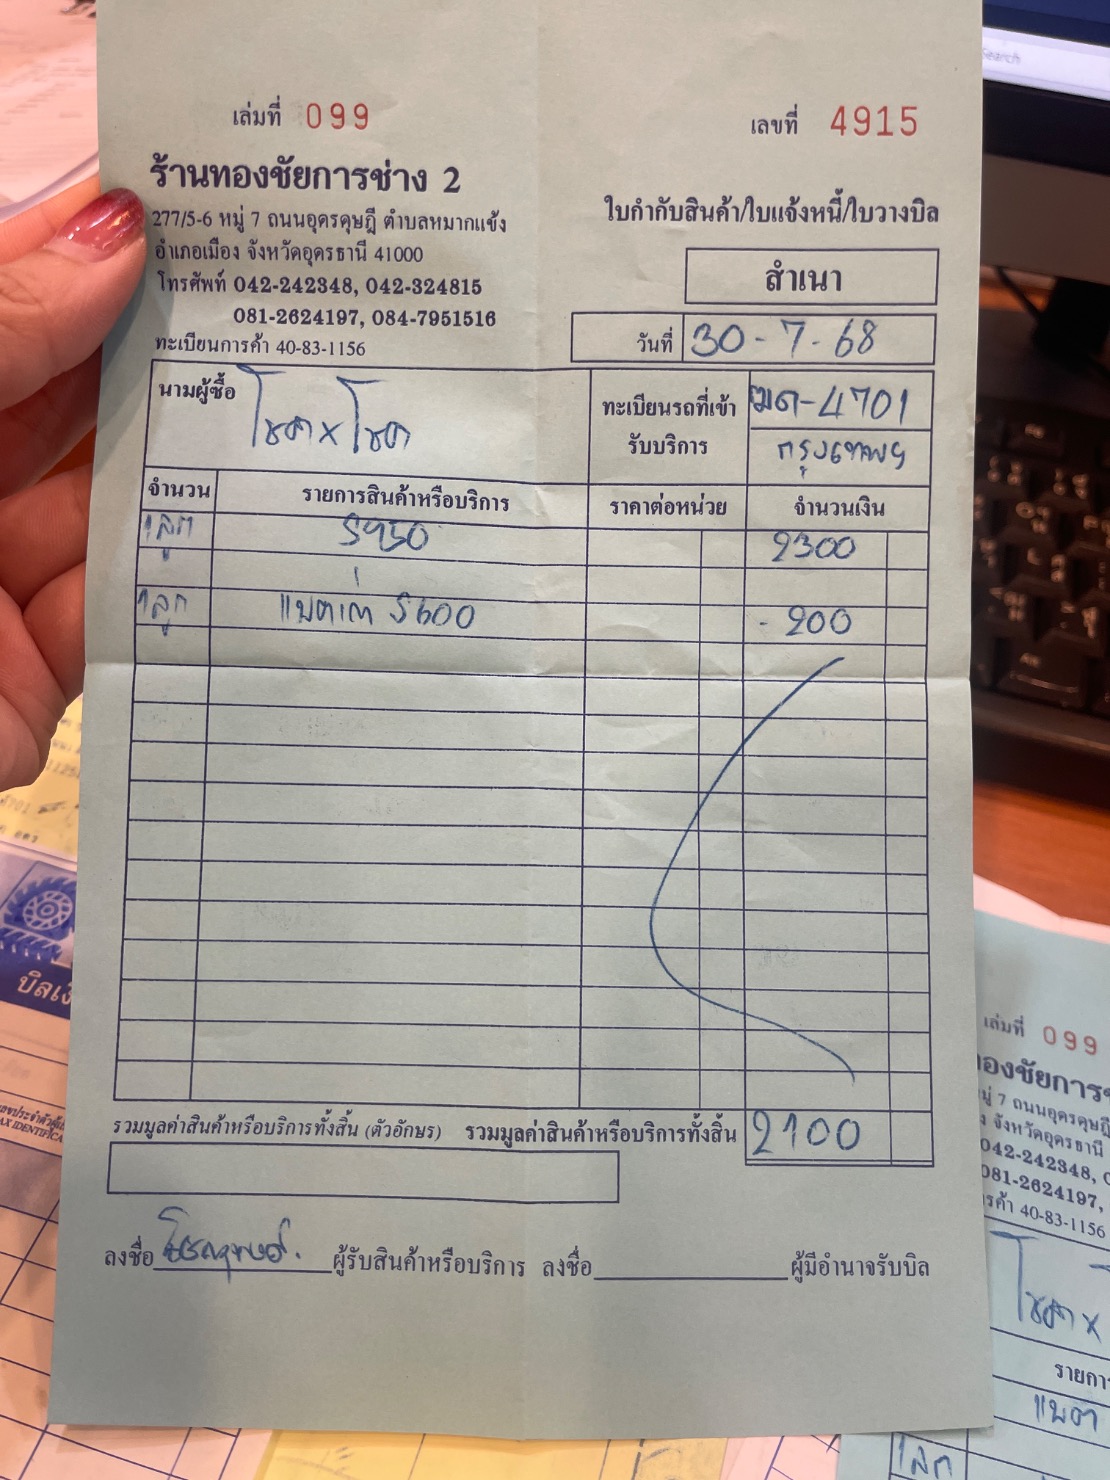 เล่มที่ 099
เลขที่ 4915
ร้านทองชัยการช่าง 2
277/5-6 หมู่ 7 ถนนอุดรดุษฎี ตำบลหมากแข้ง
อำเภอเมือง จังหวัดอุดรธานี 41000
โทรศัพท์ 042-242348, 042-324815
081-2624197, 084-7951516
ทะเบียนการค้า 40-83-1156
ใบกำกับสินค้า/ใบแจ้งหนี้/ใบวางบิล
สำเนา
วันที่ 30-7-68
นามผู้ซื้อ โชค x โชค
ทะเบียนรถที่เข้า
รับบริการ
4701
กรุงเทพฯ
จำนวน รายการสินค้าหรือบริการ ราคาต่อหน่วย จำนวนเงิน
1 ลูก 2300
1 ลูก แบตเก่า S600 - 200
รวมมูลค่าสินค้าหรือบริการทั้งสิ้น (ตัวอักษร) รวมมูลค่าสินค้าหรือบริการทั้งสิ้น 2100
ลงชื่อ ผู้รับสินค้าหรือบริการ ลงชื่อ ผู้มีอำนาจรับบิล
Search
เล่มที่ 099
หมู่ 7 ถนนอุดรดุษฎี
จังหวัดอุดรธานี
042-242348,
081-2624197,
40-83-1156
โชค x